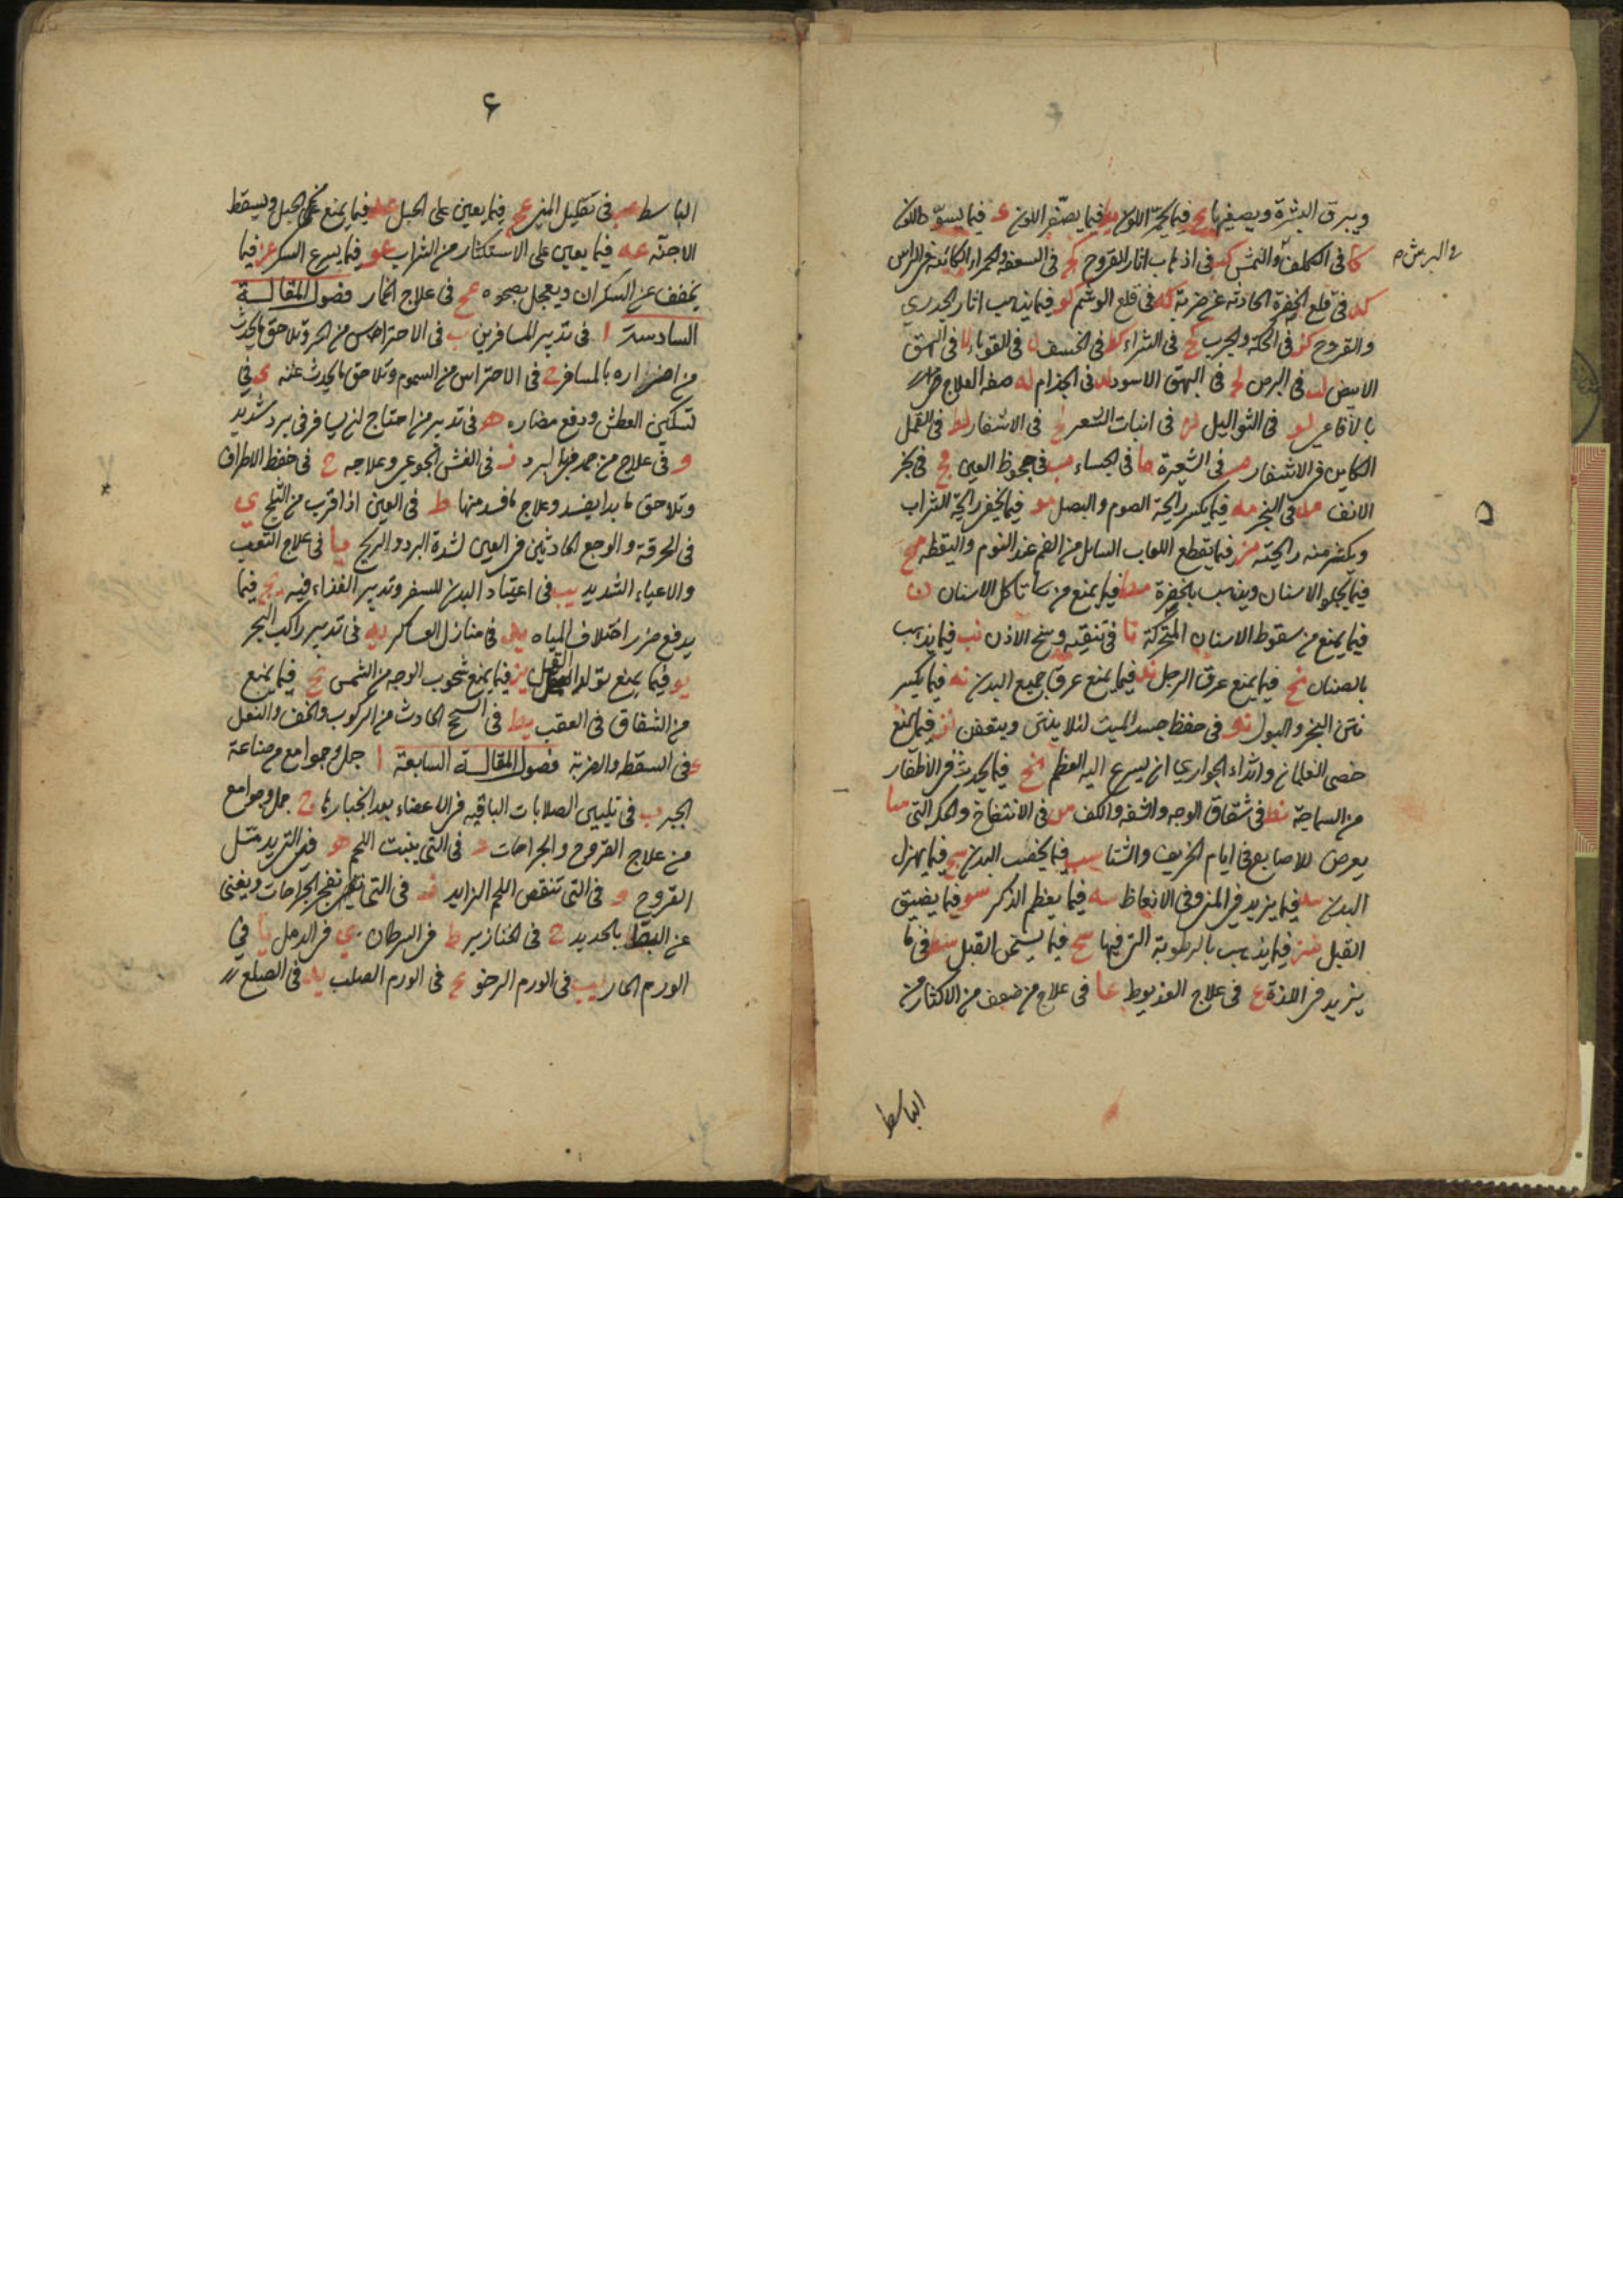 ويبرق البشرة ويصفيها يح فيما يحمر اللون يط فيما يصفر اللون ك فيما يسود اللون
كا فى الكلف والنمش كب فى اذهاب اثار القروح كج فى السعفة والحمراء الكائنة فى الراس
والبرش
كد فى قلع الخضرة الحادثة عن ضربة كه فى قلع الوشم كو فيما يذهب اثار الجدري
والقروح كز فى الحكة والجرب كح فى الشراء كط فى الحصف ل فى القوباء لا فى البهق
الابيض لب فى البرص لج فى البهق الاسود لد فى الجذام له صفة العلاج
بالافاعى لو فى الثواليل لز فى انبات الشعر لح فى الاشفار لط فى القمل
الكاين فى الاشفار م فى الشعيرة ما فى الجساء مب فى جحوظ العين مج فى بخر
الانف مد فى البخر مه فيما يكسر رايحة الثوم والبصل مو فيما يخفى رايحة الشراب
ويكثر منه رايحته مز فيما يقطع اللعاب السايل من الفم عند النوم واليقظه مح
فيما يجلو الاسنان ويذهب بالحفرة مط فيما يمنع من تاكل الاسنان ن
فيما يمنع من سقوط الاسنان المتحركة نا فى تنقيه وسخ الاذن نب فيما يذهب
بالصنان نج فيما يمنع عرق الرجل ند فيما يمنع عرق جميع البدن نه فيما يكسر
نتن البخر والبول نو فى حفظ جسد الميت لئلا ينتن ويتعفن نز فيما يمنع
خصى الغلمان واثداء الجواري ان يسرع اليه العظم نح فيما يحدث فى الاظفار
من السماجة نط فى شقاق الوجه والشفه والكف س فى الانتفاخ والحكه التى سا
يعرض للاصابع فى ايام الخريف والشتا سب فيما يخصب البدن سج فيما يهزل
البدن سد فيما يزيد فى المنى وفى الانعاظ سه فيما يعظم الذكر سو فيما يضيق
القبل سز فيما يذهب بالرطوبة التى فيها سح فيما يسخن القبل سط فى ما
يزيد فى اللذة ع فى علاج العذيوط عا فى علاج من ضعف من الاكثار من
الباسط
۶
الباسط عب فى تقليل المنى عج فيما يعين على الحبل عد فيما يمنع الحبل ويسقط
الاجنه عه فيما يعين على الاستكثار من الشراب عو فيما يسرع السكر عز فيما
يخفف عن السكران ويعجل بصحوه عح فى علاج الخمار فصول المقالــة
السادسة ا فى تدبير المسافرين ب فى الاحتراس من الحر وتلاحق ما يحدث
من اضراره بالمسافر ج فى الاحتراس من السموم وتلاحق ما يحدث عنه د فى
تسكين العطش ودفع مضاره ه فى تدبير من احتاج ان يسافر فى برد شديد
و فى علاج من جمد من البرد ز فى الغشى الجوعى وعلاجه ح فى حفظ الاطراف
وتلاحق ما بدا يفسد وعلاج ما فسد منها ط فى العين اذا قرب من الثلج ى
فى الحرقة والوجع الحادثين فى العين لشدة البرد والريح يا فى علاج التعب
والاعياء الشديد يب فى اعتياد البدن للسفر وتدبير الغذاء فيه يج فيما
يدفع ضرر اختلاف المياه يد فى منازل العساكر يه فى تدبير راكب البحر
يو فيما يمنع تولد القمل يز فيما يمنع شحوب الوجه من الشمس يح فيما يمنع
من الشقاق فى العقب يط فى السحج الحادث من الركوب والخف والنعل
ك فى السقطه والضربة فصول المقالــة السابعة ا جمل وجوامع من صناعة
الجبر ب فى تليين الصلابات الباقيه فى الاعضاء بعد انجبارها ج جمل وجوامع
من علاج القروح والجراحات د فى التى ينبت اللحم ه فى التى يدمل
القروح و فى التى تنقص اللحم الزايد ز فى التى تفجر الجراحات ويغنى
عن البط بالحديد ح فى الخنازير ط فى السرطان ى فى الدمل يا فى
الورم الحار يب فى الورم الرخو يج فى الورم الصلب يد فى الصلع